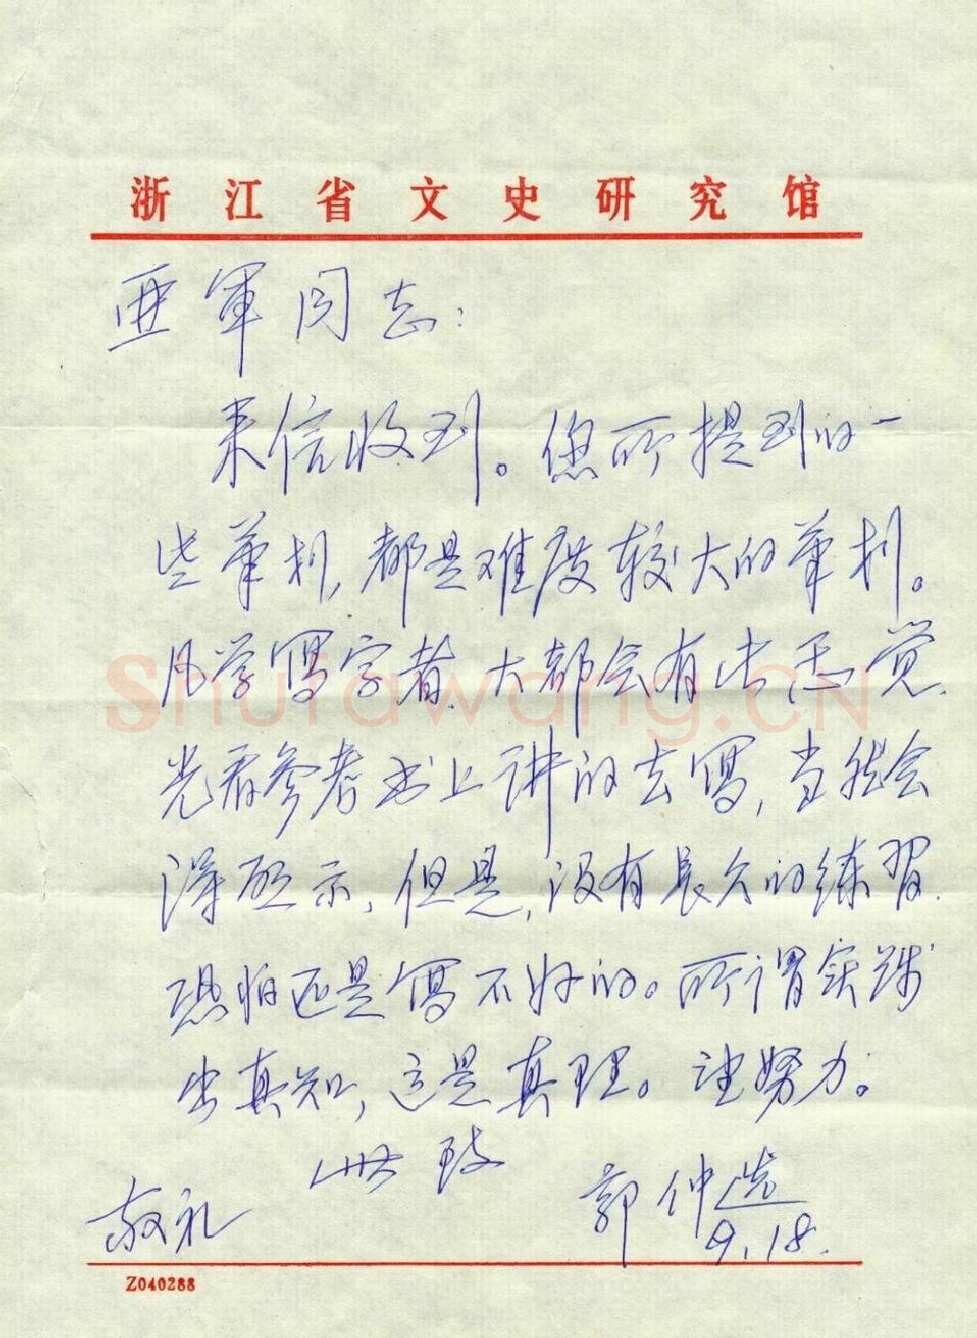 浙江省文史研究馆
亚軍同志：
来信收到。您所提到的一
些笔划，都是难度较大的笔划。
凡学写字者，大都会有此感觉，
光看参考书上讲的去写，当然会
得启示，但是，没有长久的练習，
恐怕还是写不好的。所谓实践
出真知，这是真理。望努力。
此致
敬礼
郭仲选
9.18.
Z040288
Shufawang.CN